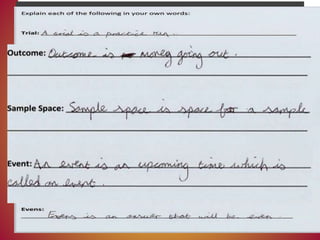 Explain each of the following in your own words:
Trial: A trial is a practice run.
Outcome: Outcome is money going out.
Sample Space: Sample space is space for a sample
Event: An event is an upcoming time which is
called an event.
Evens: Evens is an answer that will be even